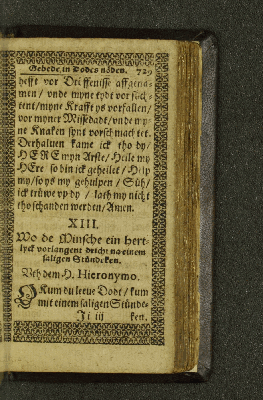 Gebede, in Dodes nöden. 729
hefft vor Drüffenisse affgena-
men / vnde myne tydt vorsüch-
tent / myne Krafft ys vorfallen /
vor myner Missedadt / vnde my-
ne Knaken synt vorschmachtet.
Derhaluen kame ick tho dy /
HERE myn Arste / Heile my
HEre so bin ick geheilet / Help
my / so ys my gehulpen / Süh /
ick trüwe vp dy / lath my nicht
tho schanden werden / Amen.
XIII.
Wo de Minsche ein hert-
lyck vorlangent drecht na einem
saligen Stündeken.
Vth dem H. Hieronymo.
O Kum du leeue Dodt / kum
mit einem saligen Stünde-
Ji iij ken.